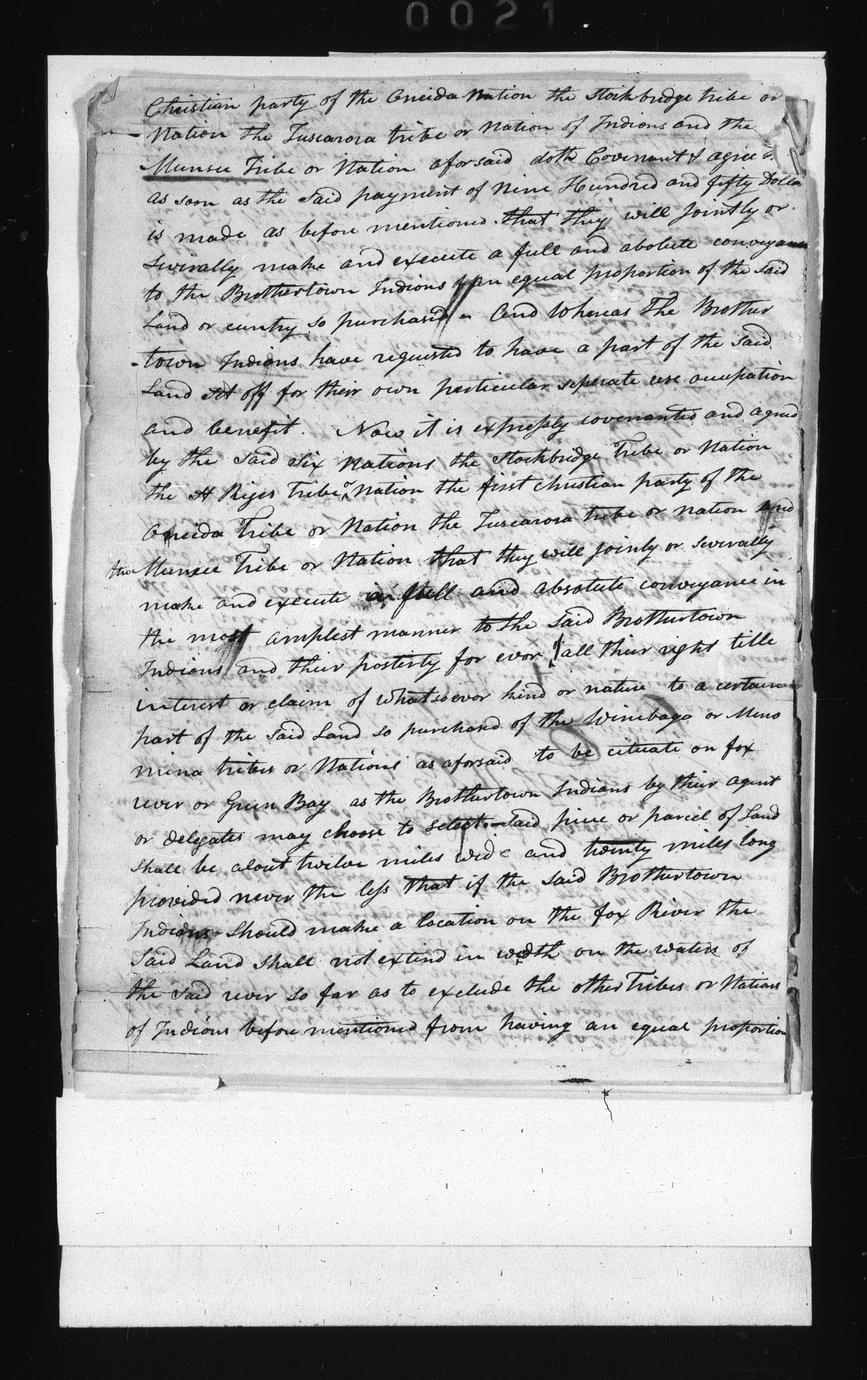 0021
Christian party of the Oneida Nation the Stockbridge tribe or
Nation the Tuscarora tribe or Nation of Indians and the
Munsee Tribe or Nation aforsaid doth Covenant & agree
as soon as the Said payment of Nine Hundred and fifty Dolla
is made as before mentioned that they will Jointly or
Sevirally make and execute a full and abolute conveyance
to the Brothertown Indians of an equal proportion of the said
Land or cuntry so purchased And Whereas The Brother
town Indians have requested to have a part of the said
Land Set off for their own particular seperate use occupation
and benefit. Now it is expressly covenanted and agreed
by the Said Six Nations the Stockbridge Tribe or Nation
the St Rigis Tribe or Nation the first christian party of the
Oneida Tribe or Nation the Tuscarora tribe or nation and
the Munsee Tribe or Nation that they will joinly or severally
make and execute a full and absolute conveyance in
the most amplest manner to the Said Brothertown
Indians and their posterity for evor of all their right title
interest or claim of whatsoevor kind or nature to a certain
part of the Said Land so purchasd of the Winebago or Meno
mena tribes or Nations as aforsaid to be cituate on fox
rever or Green Bay as the Brothertown Indians by their agent
or delegates may choose to select said piece or parcel of Land
Shall be about twelve miles wide and twenty miles long
provided never the less that if the said Brothertown
Indians Should make a location on the fox River the
Said Land shall not extend in width on the waters of
the said river so far as to exclude the other Tribes or Nations
of Indians before mentioned from having an equal proportion